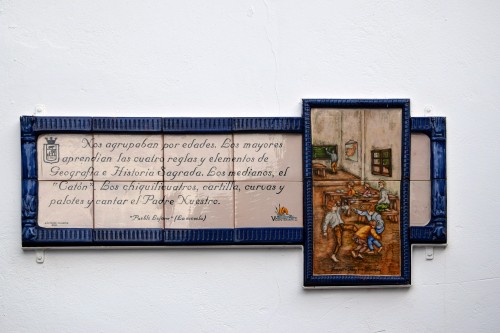 Nos agrupaban por edades. Los mayores
aprendian las cuatro reglas y elementos de
Geografía e Historia Sagrada. Los medianos, el
"Catón". Los chiquilicuatros, cartilla, curvas y
palotes y cantar el Padre Nuestro.
"Pueblo Lejano" (La escuela)